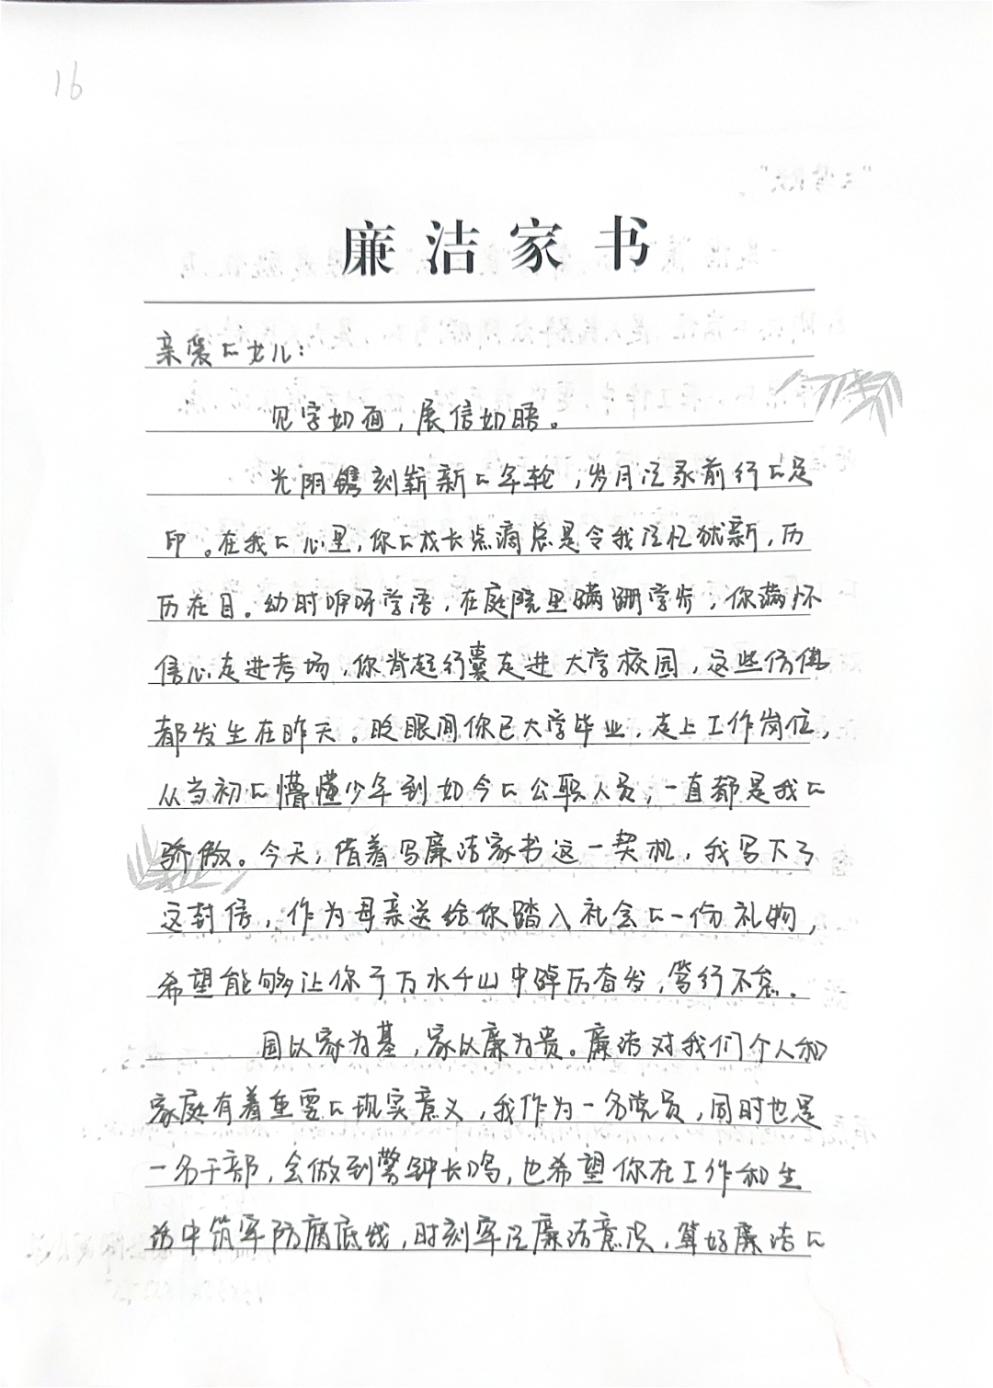 16
廉洁家书
亲爱的女儿：
见字如面，展信如晤。
光阴镌刻崭新的年轮，岁月记录前行的足
印。在我的心里，你的成长点滴总是令我记忆犹新，历
历在目。幼时咿呀学语，在庭院里蹒跚学步，你满怀
信心走进考场，你背起行囊走进大学校园，这些仿佛
都发生在昨天。眨眼间你已大学毕业，走上工作岗位，
从当初的懵懂少年到如今的公职人员，一直都是我的
骄傲。今天，借着写廉洁家书这一契机，我写下了
这封信，作为母亲送给你踏入社会的一份礼物，
希望能够让你于万水千山中踔厉奋发，笃行不怠。
国以家为基，家以廉为贵。廉洁对我们个人和
家庭有着重要的现实意义，我作为一名党员，同时也是
一名干部，会做到警钟长鸣，也希望你在工作和生
活中筑牢防腐底线，时刻牢记廉洁意识，算好廉洁的